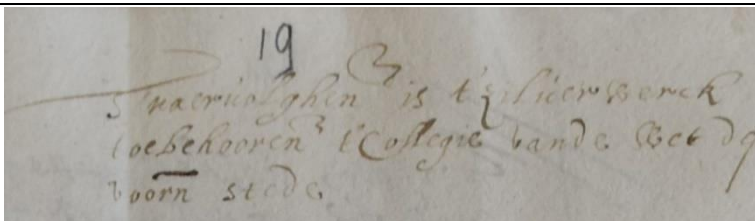 19
tnaervolghen is t'zilverwerck
toebehooren t'Collegie vande Wet d
voorn stede